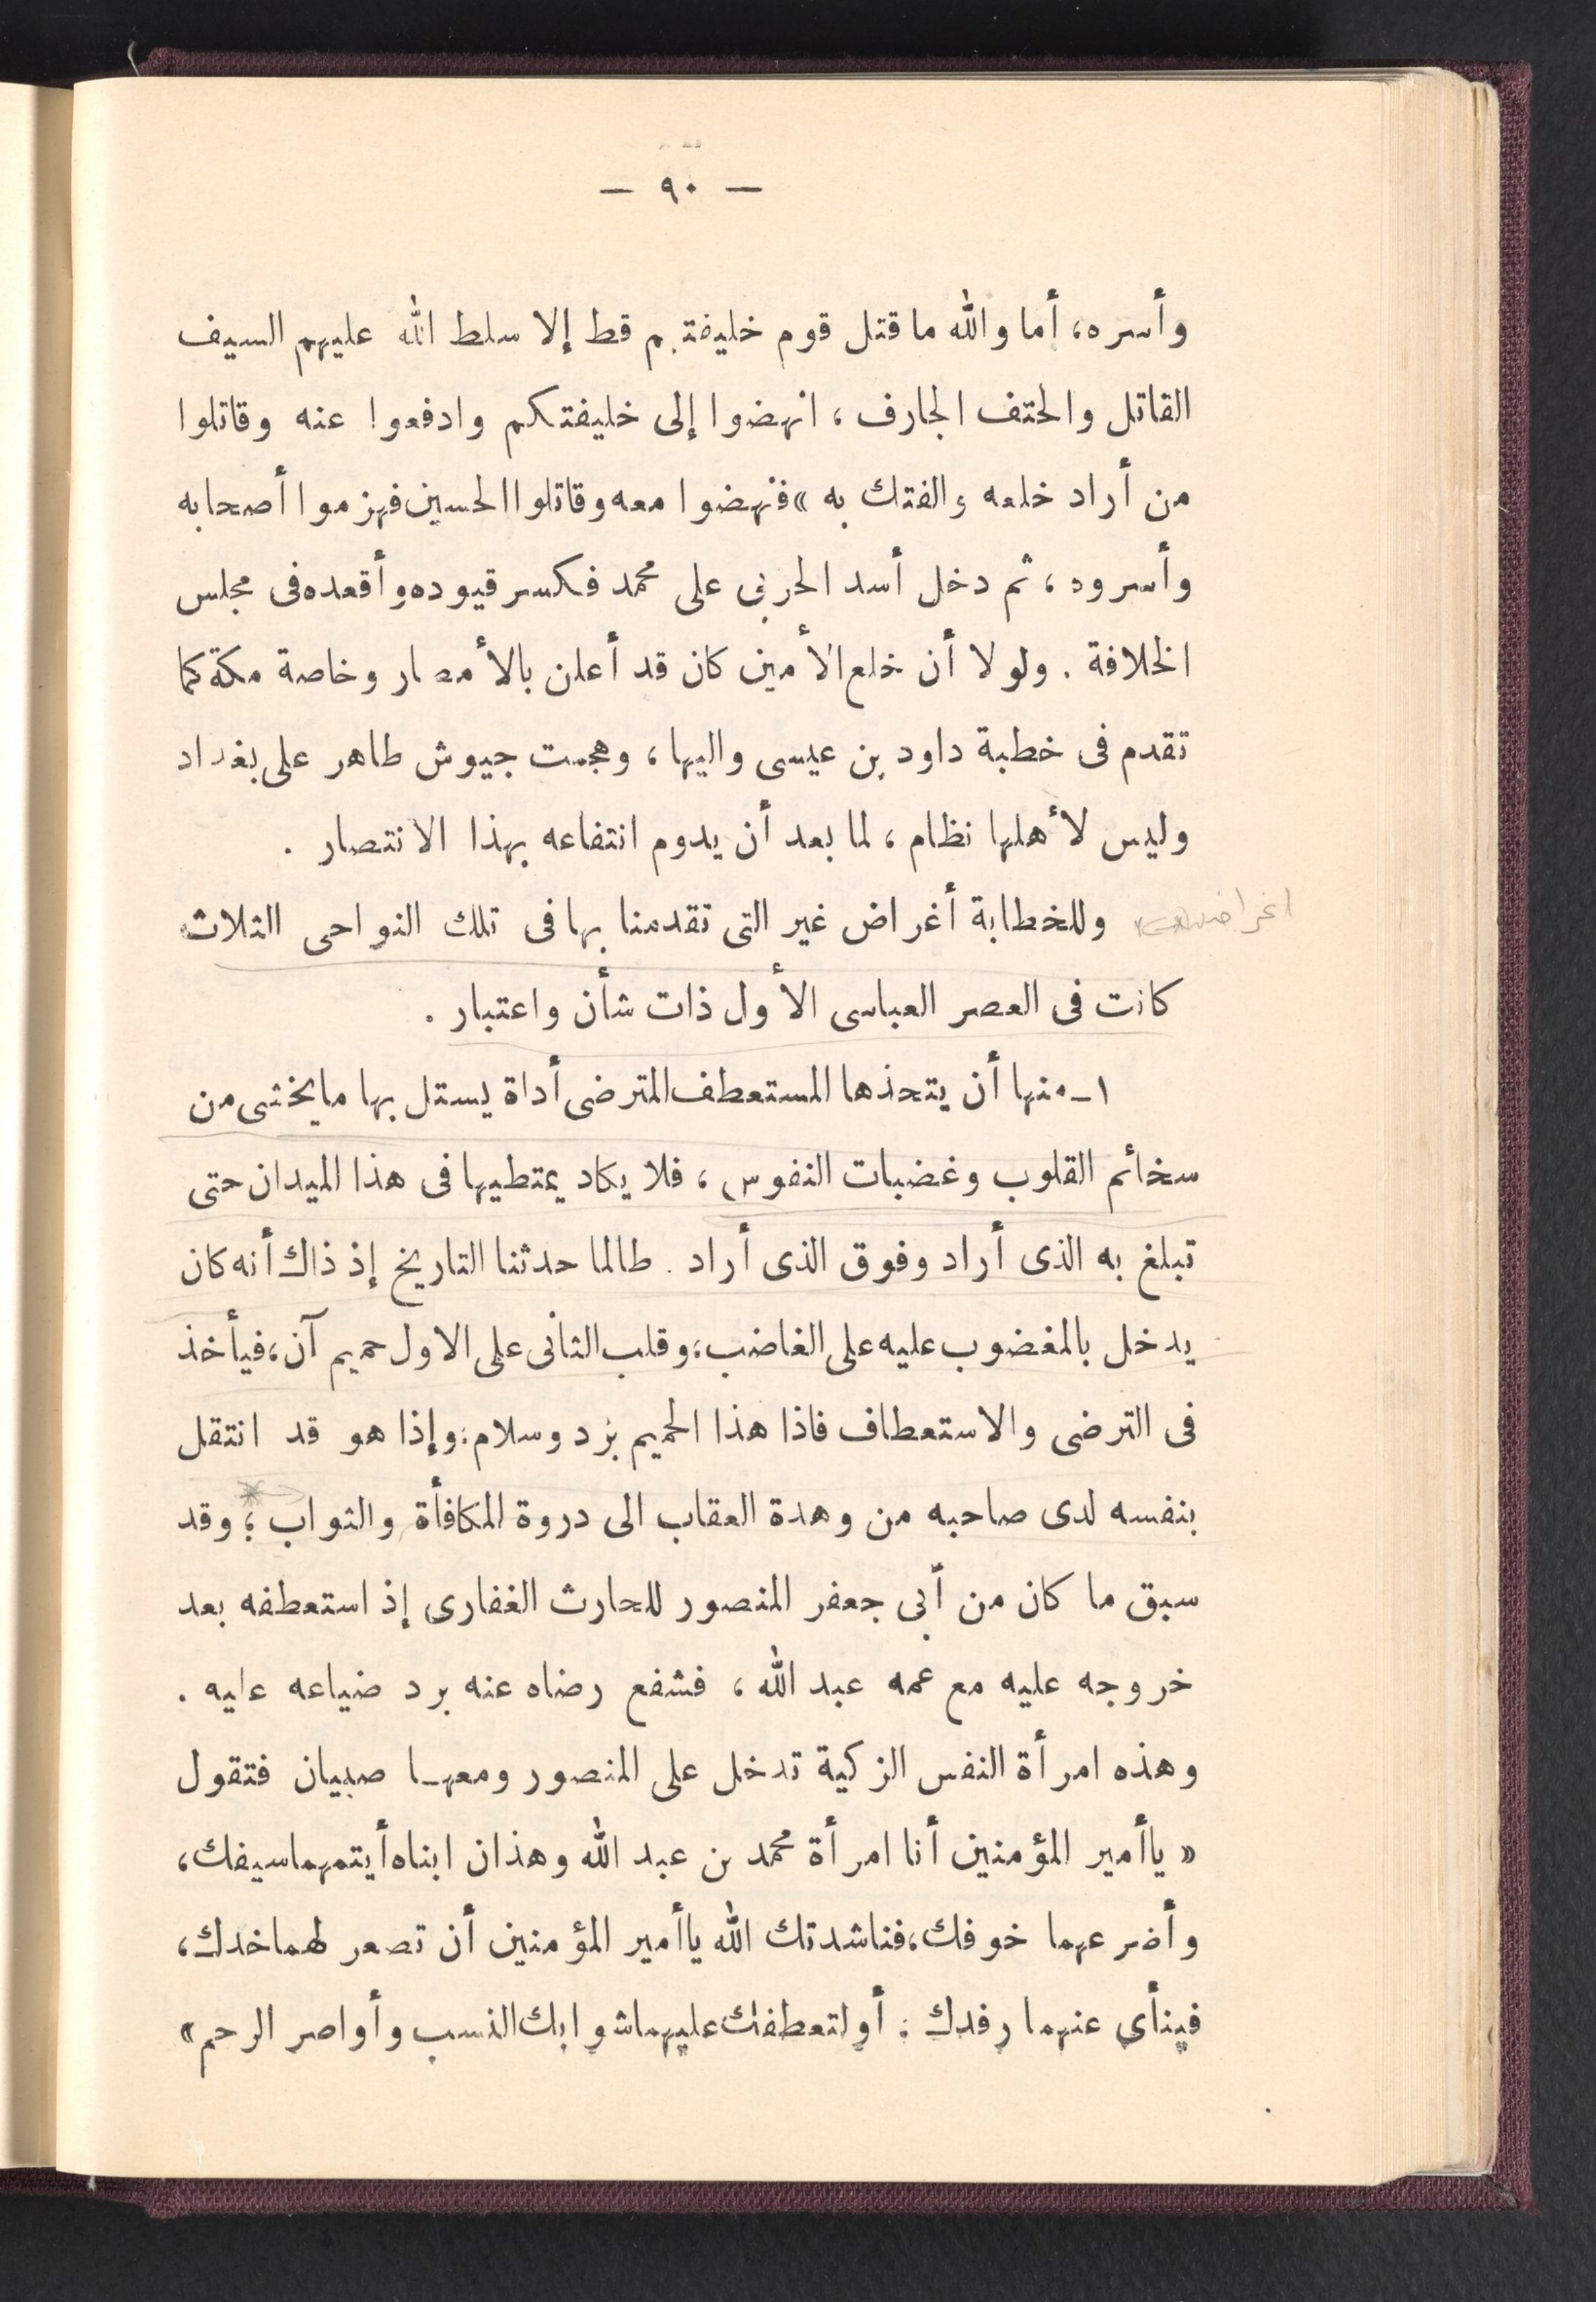 — ٩٠ —
وأسره، أما والله ما قتل قوم خليفتهم قط إلا سلط الله عليهم السيف
القاتل والحتف الجارف ، انهضوا إلى خليفتكم وادفعوا عنه وقاتلوا
من أراد خلعه والفتك به » فنهضوا معه وقاتلوا الحسين فهزموا أصحابه
وأسروه ، ثم دخل أسد الحربى على محمد فكسر قيوده وأقعده فى مجلس
الخلافة . ولولا أن خلع الأمين كان قد أعلن بالأمصار وخاصة مكة كما
تقدم فى خطبة داود بن عيسى واليها ، وهجمت جيوش طاهر على بغداد
وليس لأهلها نظام ، لما بعد أن يدوم انتفاعه بهذا الانتصار .
وللخطابة أغراض غير التى تقدمنا بها فى تلك النواحى الثلاث
كانت فى العصر العباسى الأول ذات شأن واعتبار .
١ـ منها أن يتحذها المستعطف المترضى أداة يستل بها ما يخشى من
سخائم القلوب وغضبات النفوس ، فلا يكاد يمتطيها فى هذا الميدان حتى
تبلغ به الذى أراد وفوق الذى أراد . طالما حدثنا التاريخ إذ ذاك أنه كان
يدخل بالمغضوب عليه على الغاضب ، وقلب الثانى على الاول حميم آن ، فيأخذ
فى الترضى والاستعطاف فاذا هذا الحميم برد وسلام ، وإذا هو قد انتقل
بنفسه لدى صاحبه من وهدة العقاب الى دروة المكافأة والثواب ؛ وقد
سبق ما كان من أبى جعفر المنصور للحارث الغفارى إذ استعطفه بعد
خروجه عليه مع عمه عبد الله ، فشفع رضاه عنه برد ضياعه عليه .
وهذه امرأة النفس الزكية تدخل على المنصور ومعهـا صبيان فتقول
« ياأمير المؤمنين أنا امرأة محمد بن عبد الله وهذان ابناه أيتمهما سيفك ،
وأضرعهما خوفك ، فناشدتك الله ياأمير المؤمنين أن تصعر لهما خدك ،
فينأى عنهما رفدك ; أو لتعطفك عليهما شوابك النسب وأواصر الرحم »